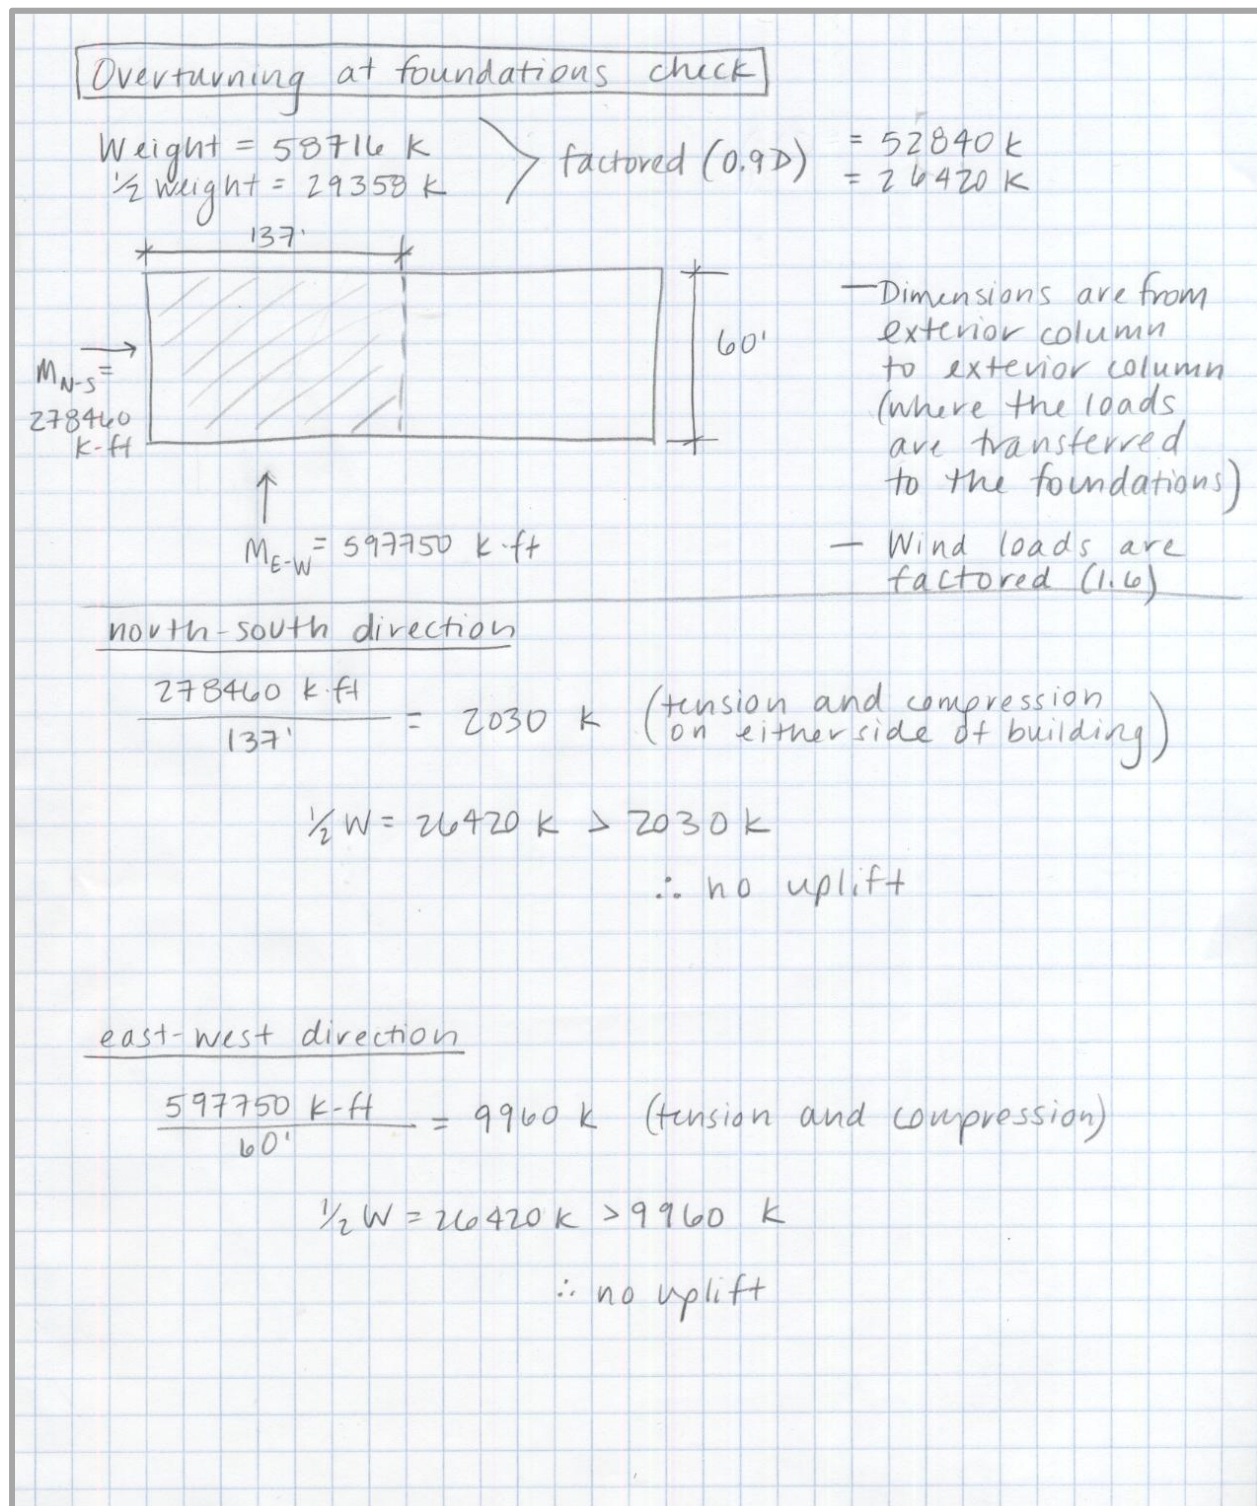 Overturning at foundations check
Weight = 58716 k
1/2 weight = 29358 k
factored (0.9D)
= 52840 k
= 26420 k
137'
60'
M N-S =
278460
k-ft
M E-W = 597750 k·ft
— Dimensions are from
exterior column
to exterior column
(where the loads
are transferred
to the foundations)
— Wind loads are
factored (1.6)
north-south direction
278460 k·ft
137'
= 2030 k
(tension and compression
on either side of building)
1/2 W = 26420 k > 2030 k
∴ no uplift
east-west direction
597750 k-ft
60'
= 9960 k (tension and compression)
1/2 W = 26420 k > 9960 k
∴ no uplift